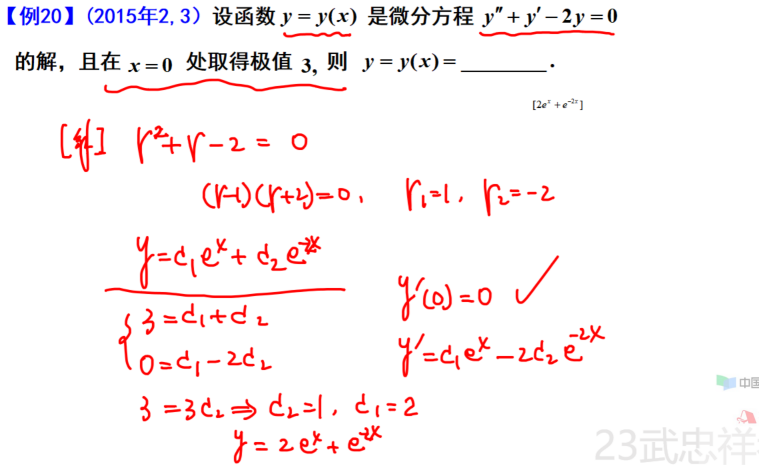 【例20】(2015年2,3) 设函数 y = y(x) 是微分方程 y″ + y′ − 2y = 0
的解，且在 x = 0 处取得极值 3, 则 y = y(x) = ________ .
[2eˣ + e⁻²ˣ]
[解] r² + r − 2 = 0
(r−1)(r+2)=0, r₁=1, r₂=−2
y = c₁eˣ + c₂e⁻²ˣ
y′(0)=0 ✓
3 = c₁ + c₂
0 = c₁ − 2c₂
y′ = c₁eˣ − 2c₂e⁻²ˣ
3 = 3c₂ ⇒ c₂=1, c₁=2
y = 2eˣ + e⁻²ˣ
中国
23武忠祥